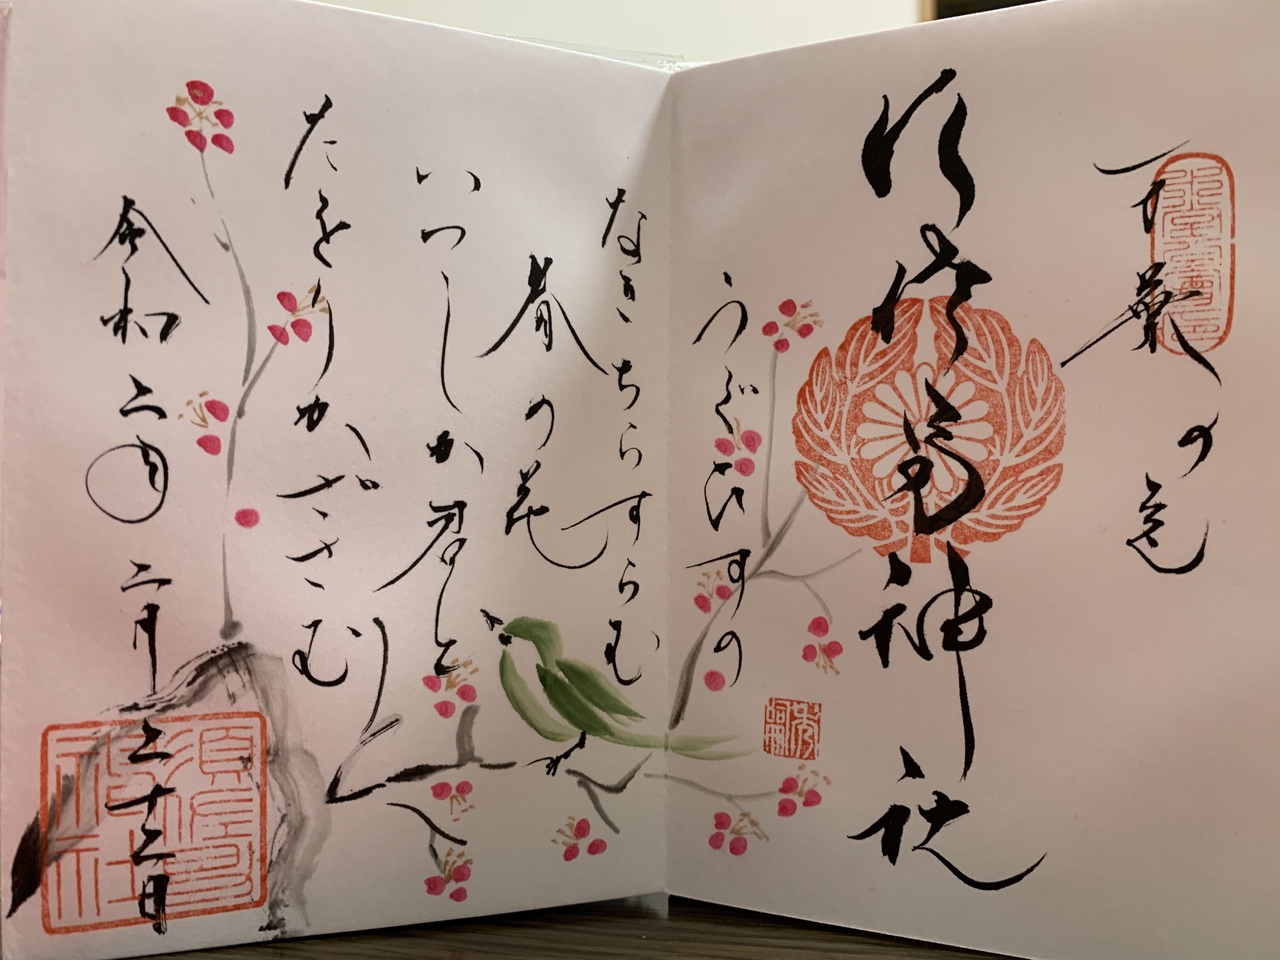 万葉の
神社
うぐひすの
なきちらすらむ
春の花
いつしか君と
たをりかざさむ
令和二年二月二十二日